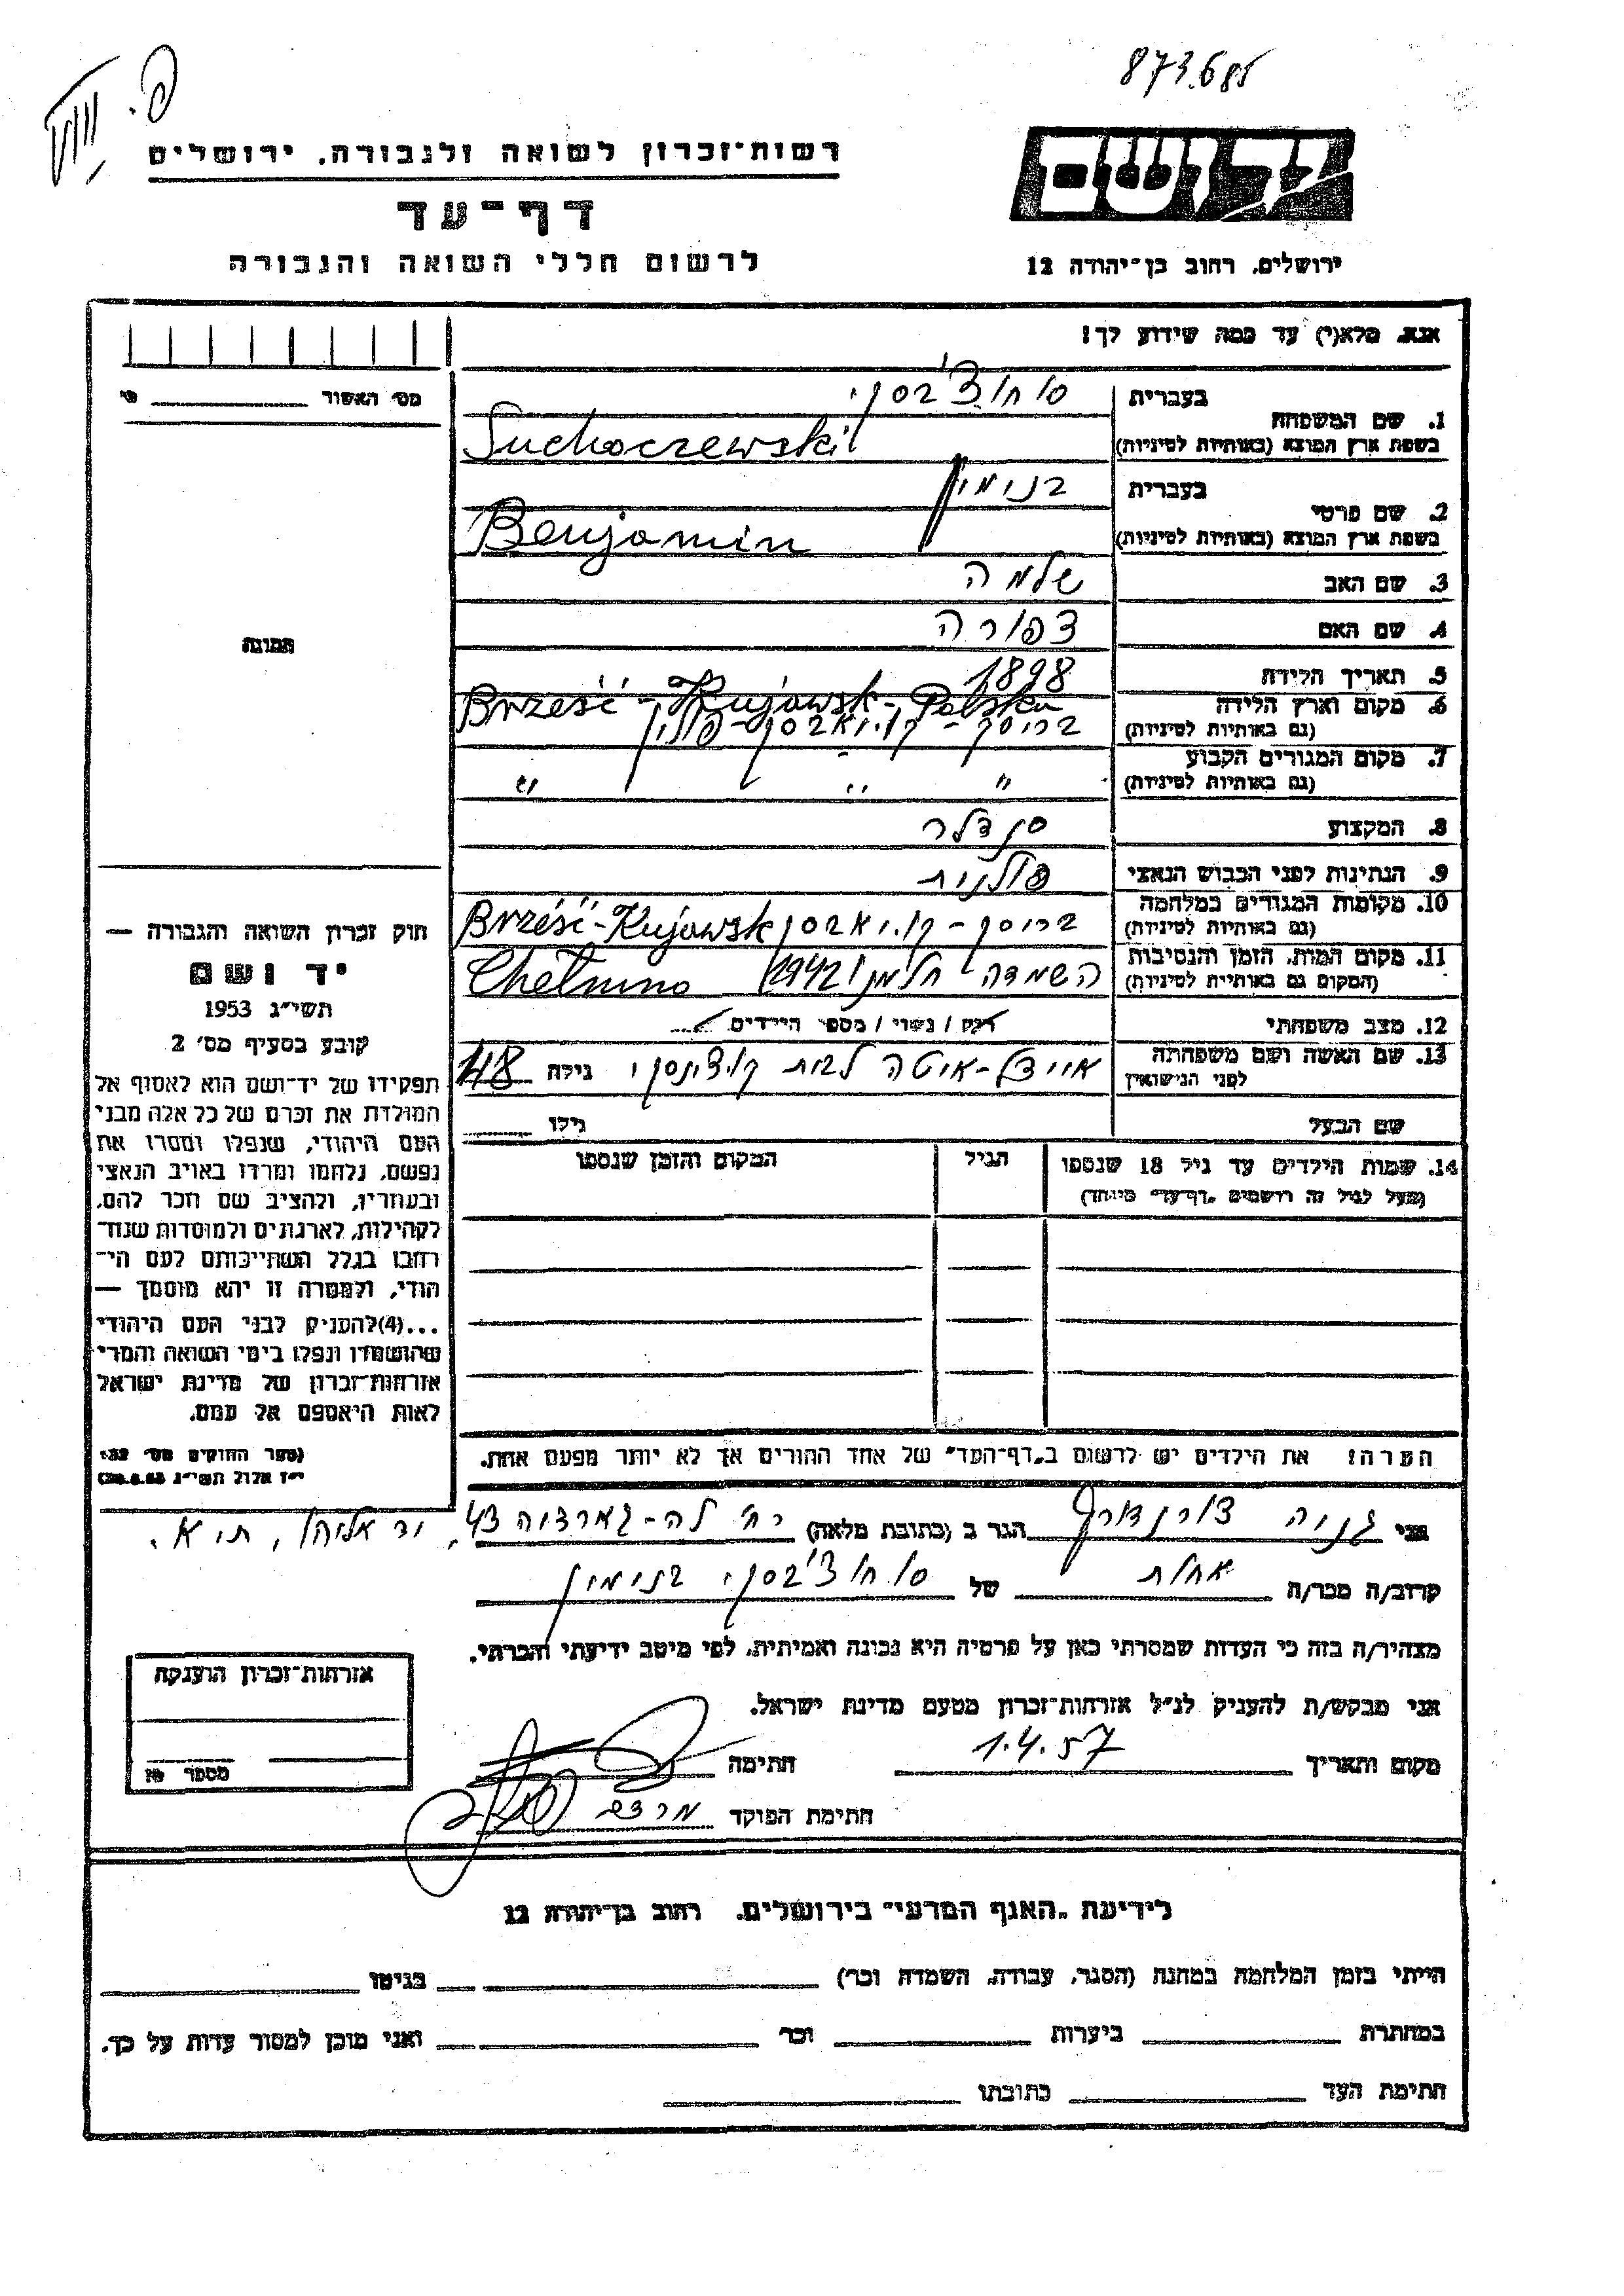 873.685
רשות־זכרון לשואה ולגבורה, ירושלים
יד ושם
דף־עד
לרשום חללי השואה והגבורה
ירושלים, רחוב בן־יהודה 12
אנא, מלא(י) עד כמה שידוע לך!
מס׳ האשור
1. שם המשפחה
בעברית סוחוצ׳בסקי
בשפת ארץ המוצא (באותיות לטיניות) Suchoczewski
2. שם פרטי
בעברית בנימין
בשפת ארץ המוצא (באותיות לטיניות) Benjamin
3. שם האב שלמה
4. שם האם צפורה
5. תאריך הלידה 1898
6. מקום וארץ הלידה Brześć - Kujawsk - Polska
(גם באותיות לטיניות) בריסק - קויאבסק - פולין
7. מקום המגורים הקבוע
(גם באותיות לטיניות) " " "
8. המקצוע סנדלר
9. הנתינות לפני הכבוש הנאצי פולנית
10. מקומות המגורים במלחמה
(גם באותיות לטיניות) בריסק - קויאבסק Brześć - Kujawsk
11. מקום המות, הזמן והנסיבות
(המקום גם באותיות לטיניות) השמדה חלמנו 1942 Chełmno
12. מצב משפחתי רווק / נשוי / מספר הילדים
13. שם האשה ושם משפחתה
לפני הנישואין איידל-איטה לבית גילה 48
שם הבעל גילו
14. שמות הילדים עד גיל 18 שנספו
(מעל לגיל זה רושמים „דף־עד״ מיוחד)
הגיל
המקום והזמן שנספו
הערה! את הילדים יש לרשום ב„דף־העד״ של אחד ההורים אך לא יותר מפעם אחת.
תמונה
חוק זכרון השואה והגבורה —
יד ושם
תשי״ג 1953
קובע בסעיף מס׳ 2
תפקידו של יד־ושם הוא לאסוף אל
המולדת את זכרם של כל אלה מבני
העם היהודי, שנפלו ומסרו את
נפשם, נלחמו ומרדו באויב הנאצי
ובעוזריו, ולהציב שם וזכר להם,
לקהילות, לארגונים ולמוסדות שנח־
רבו בגלל השתייכותם לעם הי־
הודי, ולמטרה זו יהא מוסמך —
...(4)להעניק לבני העם היהודי
שהושמדו ונפלו בימי השואה והמרי
אזרחות־זכרון של מדינת ישראל
לאות היאספם אל עמם.
(ספר החוקים מס׳ 132,
י״ז אלול תשי״ג 28.8.53)
אני גניה צורנדורף הגר ב (כתובת מלאה) רח׳ לה-גארדיה 43, יד אליהו, ת״א.
קרוב/ה מכר/ה אחות של סוחוצ׳בסקי בנימין
מצהיר/ה בזה כי העדות שמסרתי כאן על פרטיה היא נכונה ואמיתית, לפי מיטב ידיעתי והכרתי.
אני מבקש/ת להעניק לנ״ל אזרחות־זכרון מטעם מדינת ישראל.
מקום ותאריך 1.4.57 חתימה
חתימת הפוקד
אזרחות־זכרון הוענקה
מספר
לידיעת „האגף המדעי״ בירושלים, רחוב בן־יהודה 12
הייתי בזמן המלחמה במחנה (הסגר, עבודה, השמדה וכו׳) בגיטו
במחתרת ביערות וכו׳ ואני מוכן למסור עדות על כך.
חתימת העד כתובתו